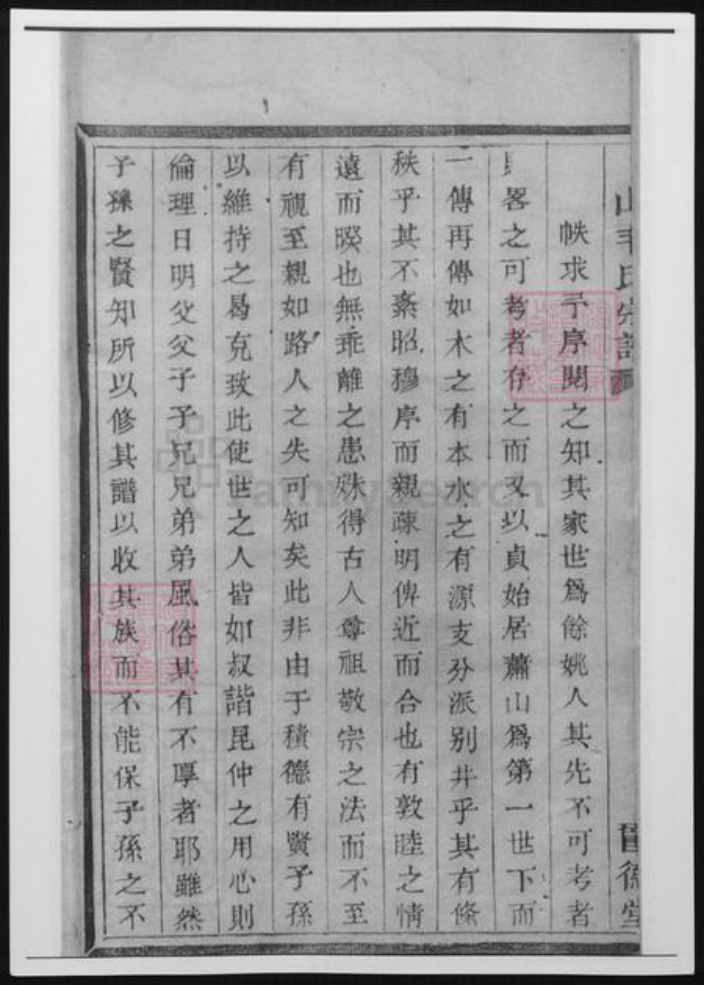 山韦氏宗譜
德堂
帙求予序閱之知其家世爲餘姚人其先不可考者
畧之可考者存之而又以貞始居蕭山爲第一世下而
一傳再傳如木之有本水之有源支分派别井乎其有條
秩乎其不紊昭穆序而親疎明俾近而合也有敦睦之情
遠而暌也無乖離之患殊得古人尊祖敬宗之法而不至
有視至親如路人之失可知矣此非由于積德有賢子孫
以維持之曷克致此使世之人皆如叔諧昆仲之用心則
倫理日明父父子子兄兄弟弟風俗其有不厚者耶雖然
子孫之賢知所以修其譜以收其族而不能保子孫之不
FamilySearch